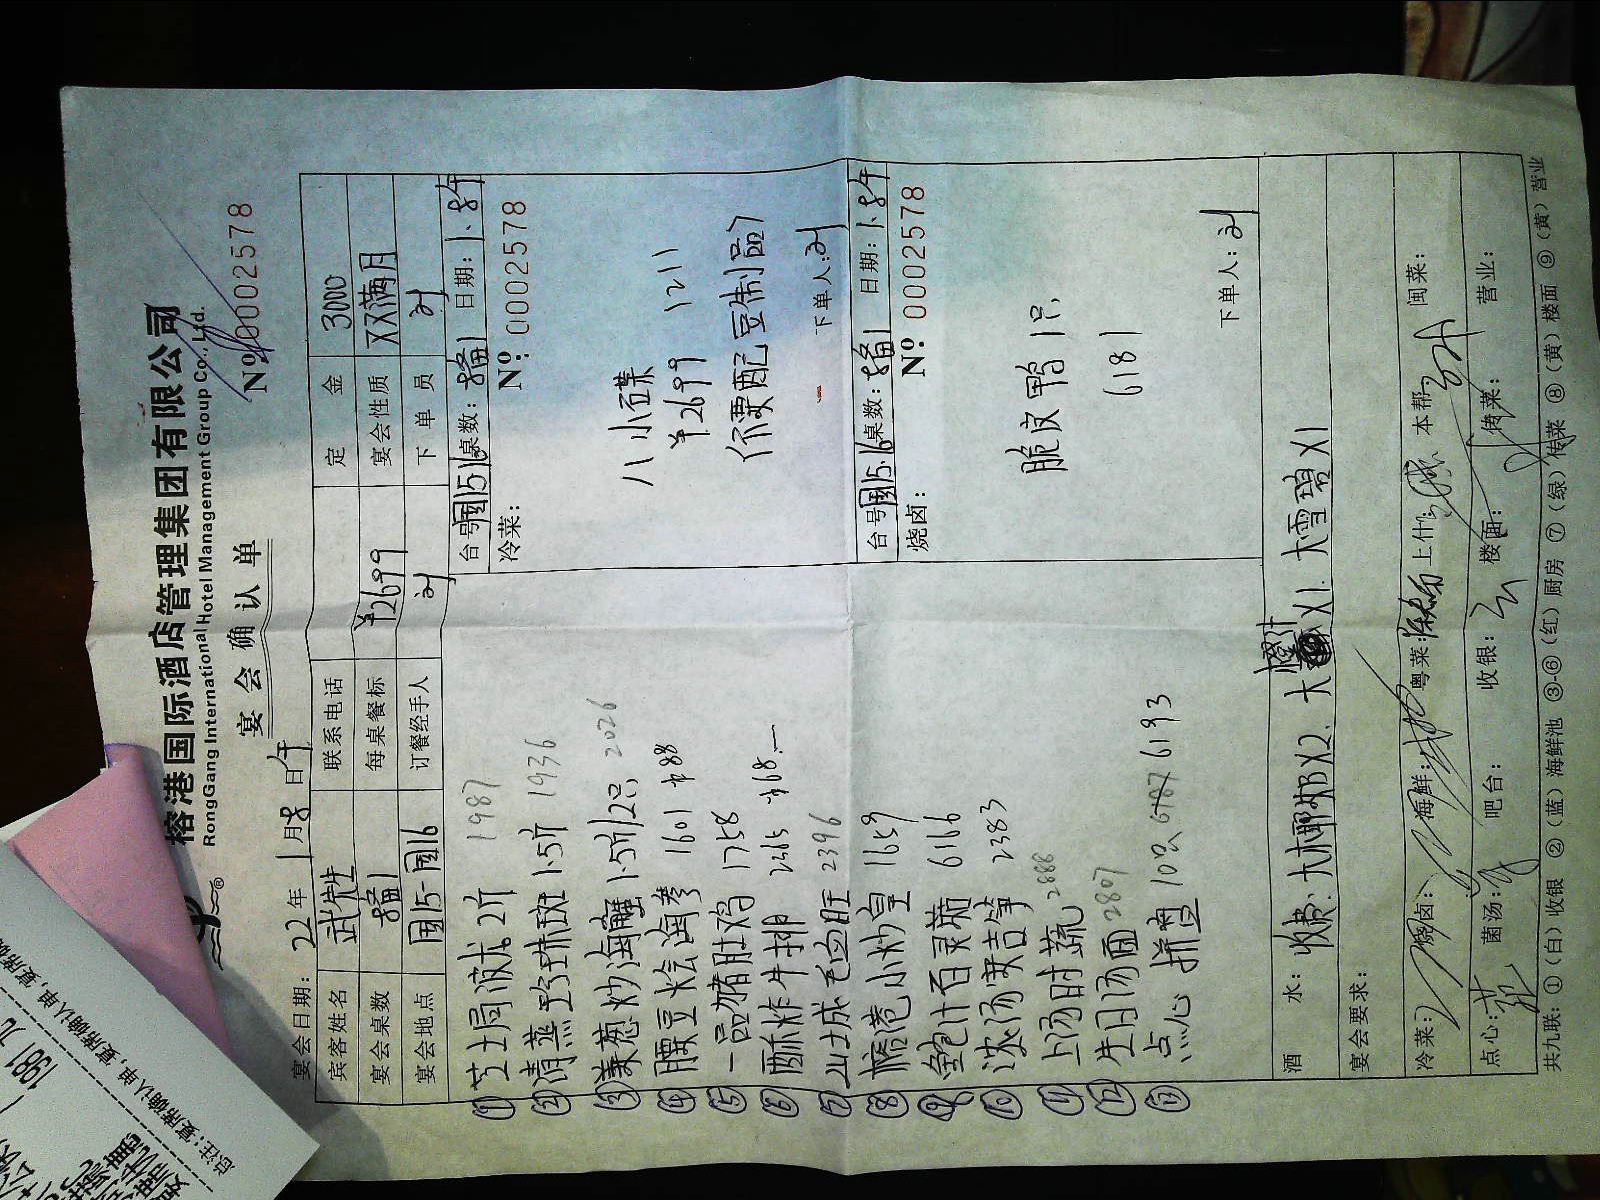 榕港国际酒店管理集团有限公司
RongGang International Hotel Management Group Co., Ltd.
宴会确认单
Nº 0002578
宴会日期: 22年1月8日午
宾客姓名 武先生 联系电话 定金 3000
宴会桌数 每桌餐标 ¥2699 宴会性质 双满月
宴会地点 国15-国16 订餐经手人 刘 下单员 刘
① 芝士焗波龙2斤 1987
② 清蒸珍珠斑1.5斤 1936
③ 姜葱炒海蟹1.5斤/2只 2026
④ 腰豆烩海参 1601 ¥88
⑤ 一品猪肚鸡 1758
⑥ 酥炸牛排 2365 ¥68.—
⑦ 山城毛血旺 2396
⑧ 小炒皇 1659
⑨ 鲍汁百灵菇 6166
⑩ 浓汤 2383
⑪ 上汤时蔬 2888
⑫ 生日汤面 2807
⑬ 点心拼盘 10只 6187 6193
台号: 国15.16 桌数: 日期: 1.8午
冷菜:
Nº: 0002578
八小碟 1211
¥2699
(不要配豆制品)
下单人: 刘
台号: 国15.16 桌数: 日期: 1.8午
烧卤:
Nº: 0002578
脆皮鸭1只
6181
下单人: 刘
酒水: 收费: 大椰树X2. 大橙汁X1. 大雪碧X1
宴会要求:
冷菜: 烧卤: 海鲜: 粤菜: 上什: 本帮: 闽菜:
点心: 菌汤: 吧台: 收银: 楼面: 传菜: 营业:
共九联: ①(白)收银 ②(蓝)海鲜池 ③-⑥(红)厨房 ⑦(绿)传菜 ⑧(黄)楼面 ⑨(黄)营业
1981元